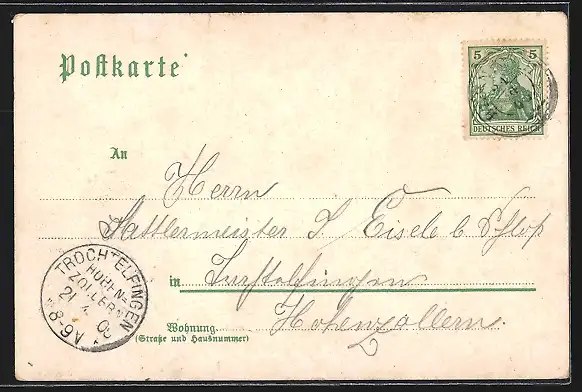 Postkarte
5 5
DEUTSCHES REICH
An
Herrn
Sattlermeister J. Eisele b. Schloß
in
Hohenzollern.
TROCHTELFINGEN
HOHEN-
ZOLLERN
21 4
8-9V
Wohnung
(Straße und Hausnummer)